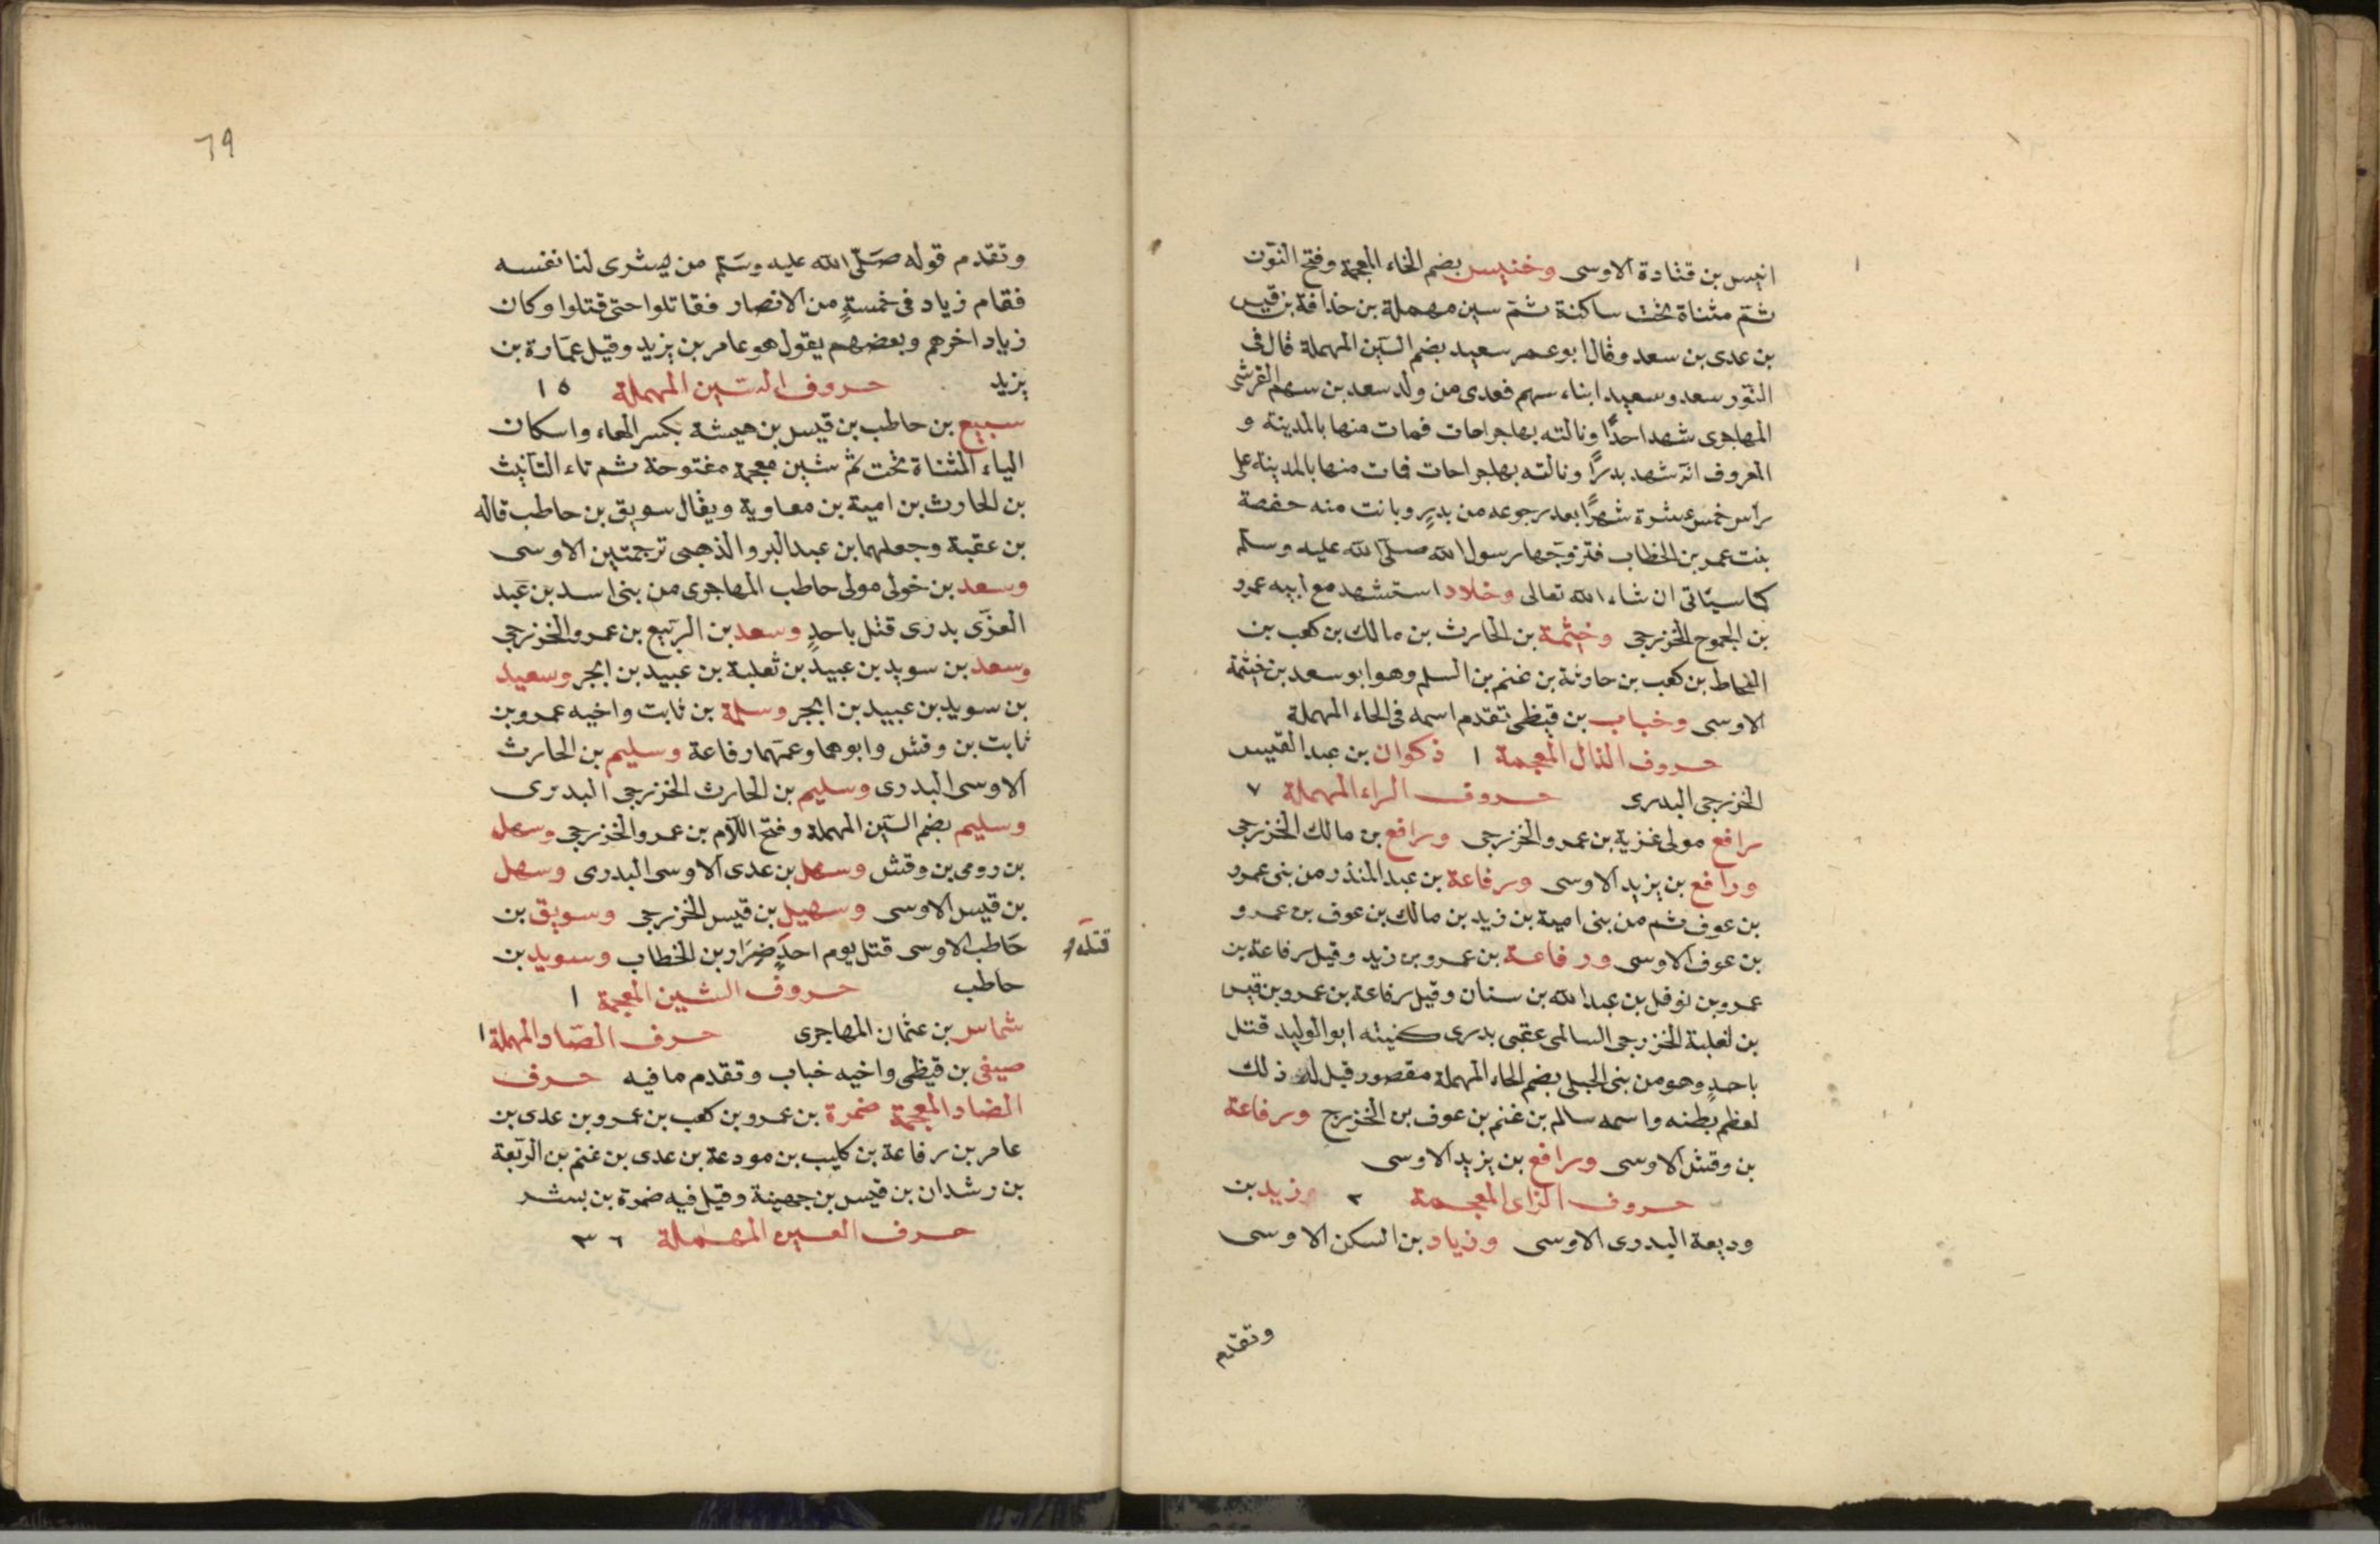 انيس بن قتادة الاوسى وخنيس بضم الخاء المعجمة وفتح النون
ثم مثناة تحت ساكنة ثم سين مهملة بن حذافة بن قيس
بن عدى بن سعد وقال ابو عمر سعيد بضم السين المهملة قال فى
النور سعد وسعيد ابناء سهم فعدى من ولد سعد بن سهم القرشى
المهاجرى شهد احدًا ونالته بها جراحات فمات منها بالمدينة و
المعروف انه شهد بدرًا ونالته بها جراحات فمات منها بالمدينة على
راس خمس عشرة شهرًا بعد رجوعه من بدرٍ وبانت منه حفصة
بنت عمر بن الخطاب فتزوجها رسول الله صلى الله عليه وسلم
كما سيئاتى ان شاء الله تعالى وخلاد استشهد مع ابيه عمرو
بن الجموح الخزرجى وخيثمة بن الحارث بن مالك بن كعب بن
النحاط بن كعب بن حارثة بن غنم بن السلم وهو ابو سعد بن خيثمة
الاوسى وخباب بن قيظى تقدم اسمه فى الحاء المهملة
حروف الذال المعجمة ١ ذكوان بن عبد القيس
الخزرجى البدرى حروف الراء المهملة ٧
رافع مولى غزية بن عمرو الخزرجى ورافع بن مالك الخزرجى
ورافع بن يزيد الاوسى ورفاعة بن عبد المنذر من بنى عمرو
بن عوف ثم من بنى امية بن زيد بن مالك بن عوف بن عمرو
بن عوف الاوسى ورفاعة بن عمرو بن زيد وقيل رفاعة بن
عمرو بن نوفل بن عبد الله بن سنان وقيل رفاعة بن عمرو بن قيس
بن ثعلبة الخزرجى السالمى عقبى بدرى كنيته ابو الوليد قتل
باحدٍ وهو من بنى الحبلى بضم الحاء المهملة مقصور قيل له ذلك
لعظم بطنه واسمه سالم بن غنم بن عوف بن الخزرج ورفاعة
بن وقش الاوسى ورافع بن يزيد الاوسى
حروف الزاى المعجمة ٢ زيد بن
وديعة البدرى الاوسى وزياد بن السكن الاوسى
وتقدم
٦٩
وتقدم قوله صلى الله عليه وسلم من يشرى لنا نفسه
فقام زياد فى خمسةٍ من الانصار فقاتلوا حتى قتلوا وكان
زياد اخرهم وبعضهم يقول هو عامر بن يزيد وقيل عمارة بن
يزيد حروف السين المهملة ١٥
سبيع بن حاطب بن قيس بن هيشة بكسر الهاء واسكان
الياء المثناة تحت ثم شين معجمة مفتوحة ثم تاء التأنيث
بن الحارث بن امية بن معاوية ويقال سويق بن حاطب قاله
بن عقبة وجعلهما بن عبد البر والذهبى ترجمتين الاوسى
وسعد بن خولى مولى حاطب المهاجرى من بنى اسد بن عبد
العزى بدرى قتل باحدٍ وسعد بن الربيع بن عمرو الخزرجى
وسعد بن سويد بن عبيد بن ثعلبة بن عبيد بن ابجر وسعيد
بن سويد بن عبيد بن ابجر وسلمة بن ثابت واخيه عمرو بن
ثابت بن وقش وابوهما وعمهما رفاعة وسليم بن الحارث
الاوسى البدرى وسليم بن الحارث الخزرجى البدرى
وسليم بضم السين المهملة وفتح اللام بن عمرو الخزرجى وسهل
بن رومى بن وقش وسهل بن عدى الاوسى البدرى وسهل
بن قيس الاوسى وسهيل بن قيس الخزرجى وسويق بن
حاطب الاوسى قتل يوم احدٍ ضرار بن الخطاب وسويد بن
قتله
حاطب حروف الشين المعجمة ١
شماس بن عثمان المهاجرى حرف الصاد المهملة ١
صيفى بن قيظى واخيه خباب وتقدم ما فيه حرف
الضاد المعجمة ضمرة بن عمرو بن كعب بن عمرو بن عدى بن
عامر بن رفاعة بن كليب بن مودعة بن عدى بن غنم بن الربعة
بن رشدان بن قيس بن جهينة وقيل فيه ضمرة بن بشر
حرف العين المهملة ٣٦